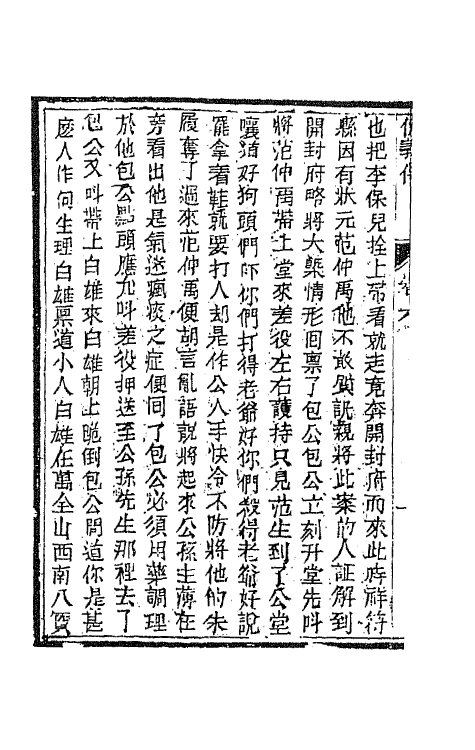 俠義傳 卷六
也把李保兒拴上帶看就走竟奔開封府而來此時祥符
縣因有狀元范仲禹他不敢質訊親將此案的人証解到
開封府略將大槩情形回禀了包公包公立刻升堂先呌
將范仲禹帶上堂來差役左右護持只見范生到了公堂
嚷道好狗頭們吓你們打得老爺好你們殺得老爺好說
罷拿着鞋就要打人却是作公人手快冷不防將他的朱
履奪了過來范仲禹便胡言亂語說將起來公孫主簿在
旁看出他是氣迷瘋痰之症便回了包公必須用藥調理
於他包公點頭應允呌差役押送至公孫先生那裡去了
包公又呌帶上白雄來白雄朝上跪倒包公問道你是甚
麽人作何生理白雄禀道小人白雄在萬全山西南八寳